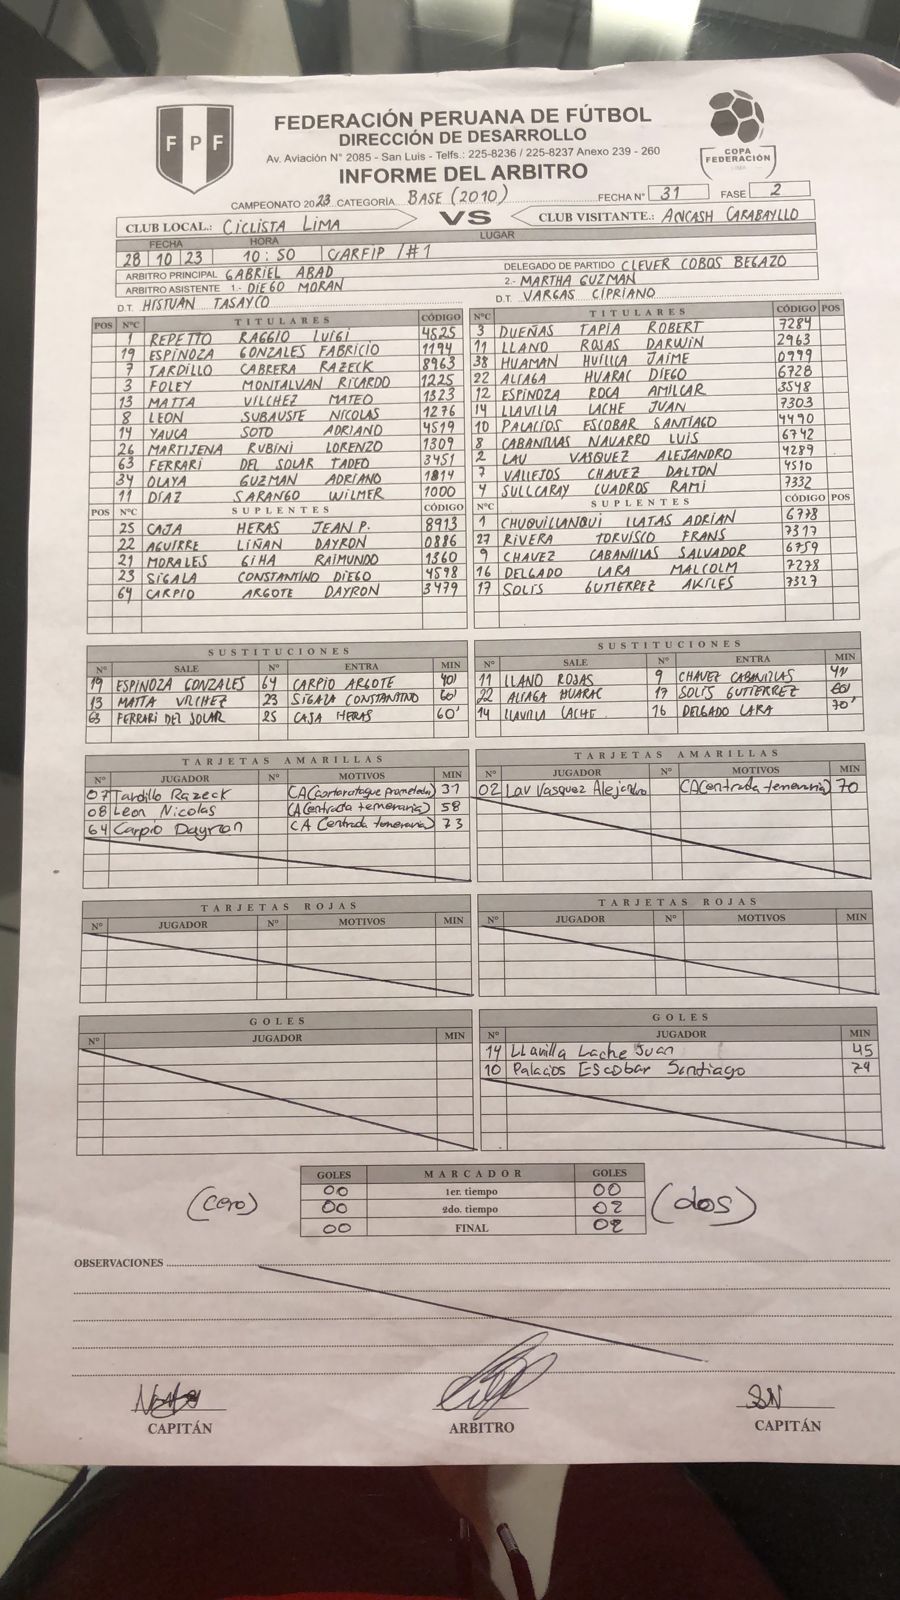 FPF
FEDERACIÓN PERUANA DE FÚTBOL
DIRECCIÓN DE DESARROLLO
Av. Aviación N° 2085 - San Luis - Telfs.: 225-8236 / 225-8237 Anexo 239 - 260
INFORME DEL ARBITRO
COPA FEDERACIÓN
CAMPEONATO 2023 CATEGORÍA BASE (2010) FECHA N° 31 FASE 2
CLUB LOCAL.: CICLISTA LIMA VS CLUB VISITANTE.: ANCASH CARABAYLLO
FECHA HORA LUGAR
28 10 23 10:50 CARFIP /#1
ARBITRO PRINCIPAL GABRIEL ABAD DELEGADO DE PARTIDO CLEVER COBOS BEGAZO
ARBITRO ASISTENTE 1.- DIEGO MORAN 2.- MARTHA GUZMAN
D.T. HISTUAN TASAYCO D.T. VARGAS CIPRIANO
POS N°C TITULARES CÓDIGO N°C TITULARES CÓDIGO POS
1 REPETTO RAGGIO LUIGI 4525 3 DUEÑAS TAPIA ROBERT 7284
19 ESPINOZA GONZALES FABRICIO 1194 11 LLANO ROSAS DARWIN 2963
7 TARDILLO CABRERA RAZECK 8963 38 HUAMAN HUILLCA JAIME 0999
3 FOLEY MONTALVAN RICARDO 1225 22 ALIAGA HUARAC DIEGO 6728
13 MATTA VILCHEZ MATEO 1323 12 ESPINOZA ROCA AMILCAR 3548
8 LEON SUBAUSTE NICOLAS 1276 14 LLAVILLA LACHE JUAN 7303
14 YAUCA SOTO ADRIANO 4519 10 PALACIOS ESCOBAR SANTIAGO 4490
26 MARTIJENA RUBINI LORENZO 1309 8 CABANILLAS NAVARRO LUIS 6742
63 FERRARI DEL SOLAR TADEO 3451 2 LAU VASQUEZ ALEJANDRO 4289
34 OLAYA GUZMAN ADRIANO 1814 7 VALLEJOS CHAVEZ DALTON 4510
11 DIAZ SARANGO WILMER 1000 4 SULLCARAY CUADROS RAMI 7332
POS N°C SUPLENTES CÓDIGO N°C SUPLENTES CÓDIGO POS
25 CAJA HERAS JEAN P. 8913 1 CHUQUILLANQUI LLATAS ADRIAN 6778
22 AGUIRRE LIÑAN DAYRON 0886 27 RIVERA TORVISCO FRANS 7317
21 MORALES GIHA RAIMUNDO 1360 9 CHAVEZ CABANILLAS SALVADOR 6759
23 SIGALA CONSTANTINO DIEGO 4598 16 DELGADO LARA MALCOLM 7278
64 CARPIO ARGOTE DAYRON 3479 17 SOLIS GUTIERREZ AKILES 7327
SUSTITUCIONES SUSTITUCIONES
N° SALE N° ENTRA MIN N° SALE N° ENTRA MIN
19 ESPINOZA GONZALES 64 CARPIO ARGOTE 40' 11 LLANO ROSAS 9 CHAVEZ CABANILLAS 41'
13 MATTA VILCHEZ 23 SIGALA CONSTANTINO 60' 22 ALIAGA HUARAC 17 SOLIS GUTIERREZ 60'
63 FERRARI DEL SOLAR 25 CAJA HERAS 60' 14 LLAVILLA LACHE 16 DELGADO LARA 70'
TARJETAS AMARILLAS TARJETAS AMARILLAS
N° JUGADOR MOTIVOS MIN N° JUGADOR MOTIVOS MIN
07 Tardillo Razeck CA 31 02 Lav Vasquez Alejandro CA(entrada temeraria) 70
08 Leon Nicolas CA(entrada temeraria) 58
64 Carpio Dayron CA (entrada temeraria) 73
TARJETAS ROJAS TARJETAS ROJAS
N° JUGADOR N° MOTIVOS MIN N° JUGADOR N° MOTIVOS MIN
GOLES GOLES
N° JUGADOR MIN N° JUGADOR MIN
14 LLavilla Lache Juan 45
10 Palacios Escobar Santiago 74
GOLES MARCADOR GOLES
00 1er. tiempo 00
(cero) 00 2do. tiempo 02 (dos)
00 FINAL 02
OBSERVACIONES
CAPITÁN ARBITRO CAPITÁN